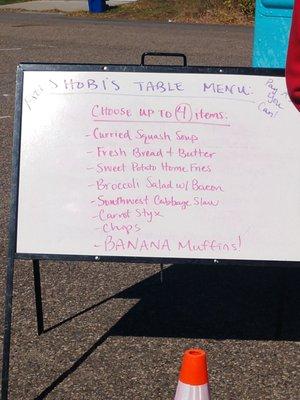 SHOBI'S TABLE MENU:
Pay What
You
Can!
CHOOSE UP TO (4) items:
- Curried Squash Soup
- Fresh Bread + Butter
- Sweet Potato Home Fries
- Broccoli Salad w/ Bacon
- Southwest Cabbage Slaw
- Carrot Styx
- Chips
- BANANA Muffins!